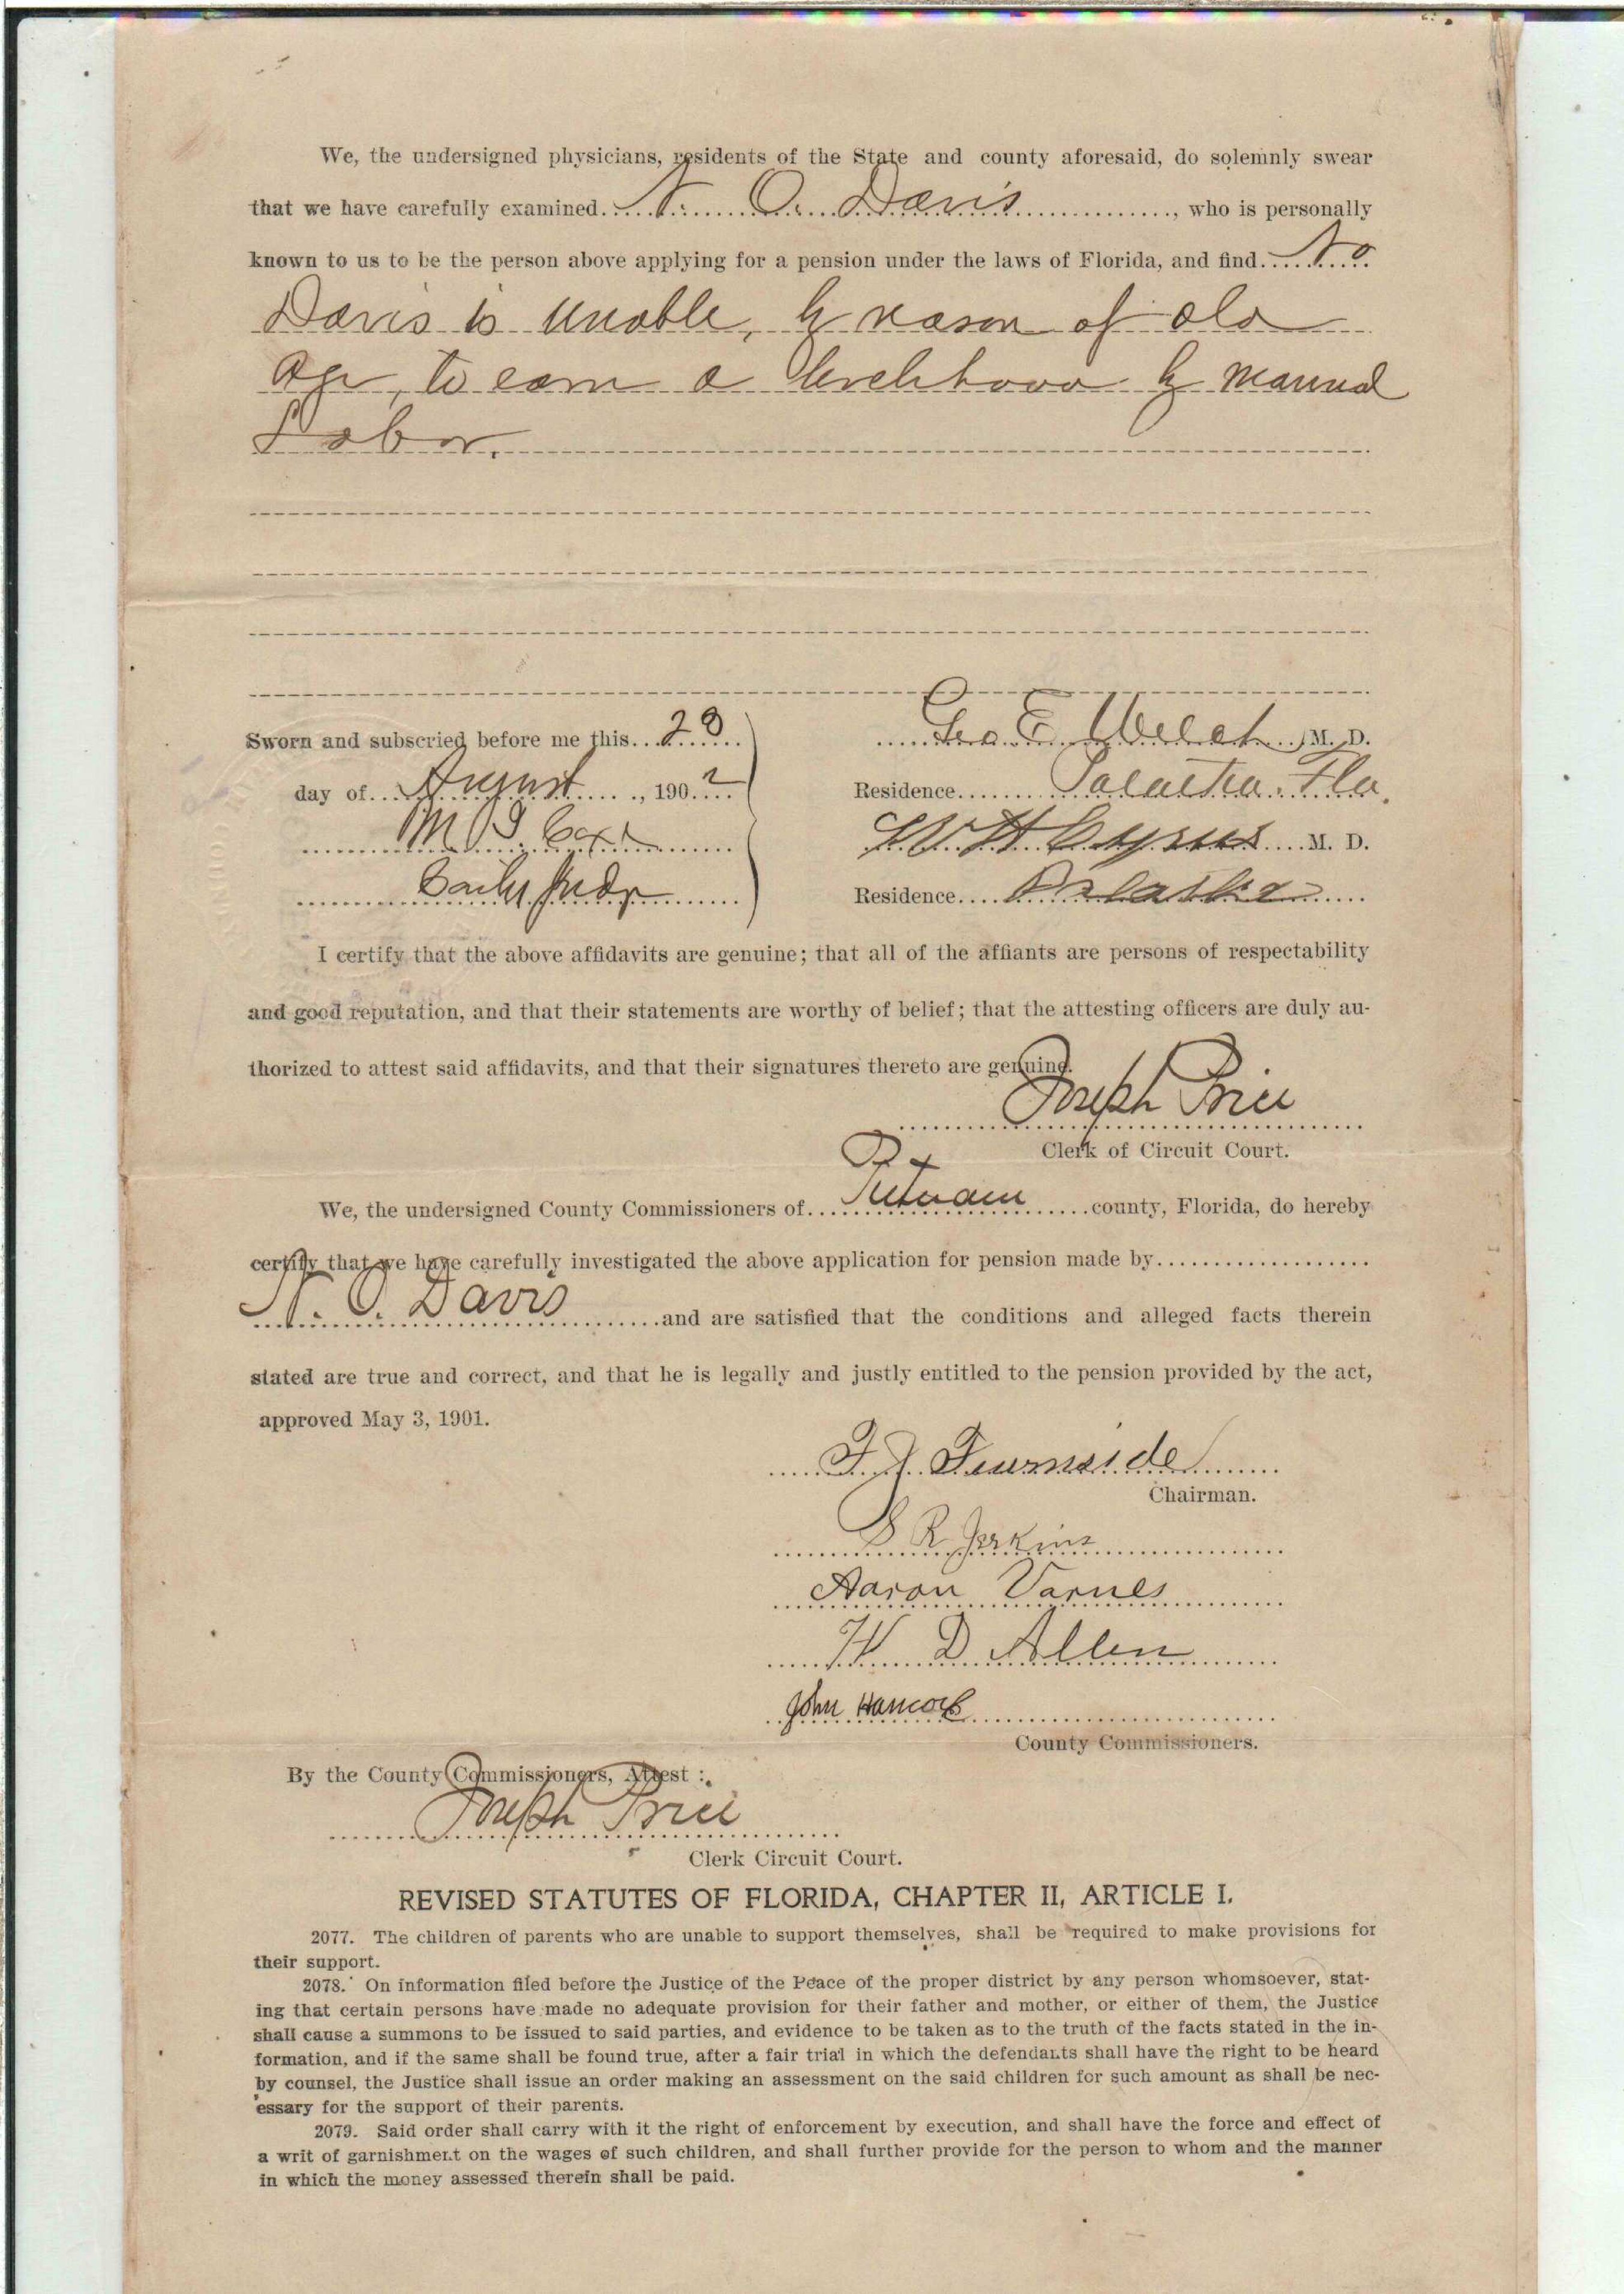 We, the undersigned physicians, residents of the State and county aforesaid, do solemnly swear
that we have carefully examined. N. O. Davis, who is personally
known to us to be the person above applying for a pension under the laws of Florida, and find. N O
Davis is unable, by reason of old
age, to earn a livelihood by manual
Labor.
Sworn and subscried before me this 28
day of August, 1902
M S
County Judge
Geo E. Welch, M. D.
Residence Palatka, Fla.
W H Cyrus M. D.
Residence Palatka
I certify that the above affidavits are genuine; that all of the affiants are persons of respectability
and good reputation, and that their statements are worthy of belief; that the attesting officers are duly au-
thorized to attest said affidavits, and that their signatures thereto are genuine.
Joseph Price
Clerk of Circuit Court.
We, the undersigned County Commissioners of Putnam county, Florida, do hereby
certify that we have carefully investigated the above application for pension made by
N. O. Davis and are satisfied that the conditions and alleged facts therein
stated are true and correct, and that he is legally and justly entitled to the pension provided by the act,
approved May 3, 1901.
F J Fearnside
Chairman.
S R Jerkins
Aaron Varnes
W D Allen
John Hancock
County Commissioners.
By the County Commissioners, Attest:
Joseph Price
Clerk Circuit Court.
REVISED STATUTES OF FLORIDA, CHAPTER II, ARTICLE I.
2077. The children of parents who are unable to support themselves, shall be required to make provisions for
their support.
2078. On information filed before the Justice of the Peace of the proper district by any person whomsoever, stat-
ing that certain persons have made no adequate provision for their father and mother, or either of them, the Justice
shall cause a summons to be issued to said parties, and evidence to be taken as to the truth of the facts stated in the in-
formation, and if the same shall be found true, after a fair trial in which the defendants shall have the right to be heard
by counsel, the Justice shall issue an order making an assessment on the said children for such amount as shall be nec-
essary for the support of their parents.
2079. Said order shall carry with it the right of enforcement by execution, and shall have the force and effect of
a writ of garnishment on the wages of such children, and shall further provide for the person to whom and the manner
in which the money assessed therein shall be paid.